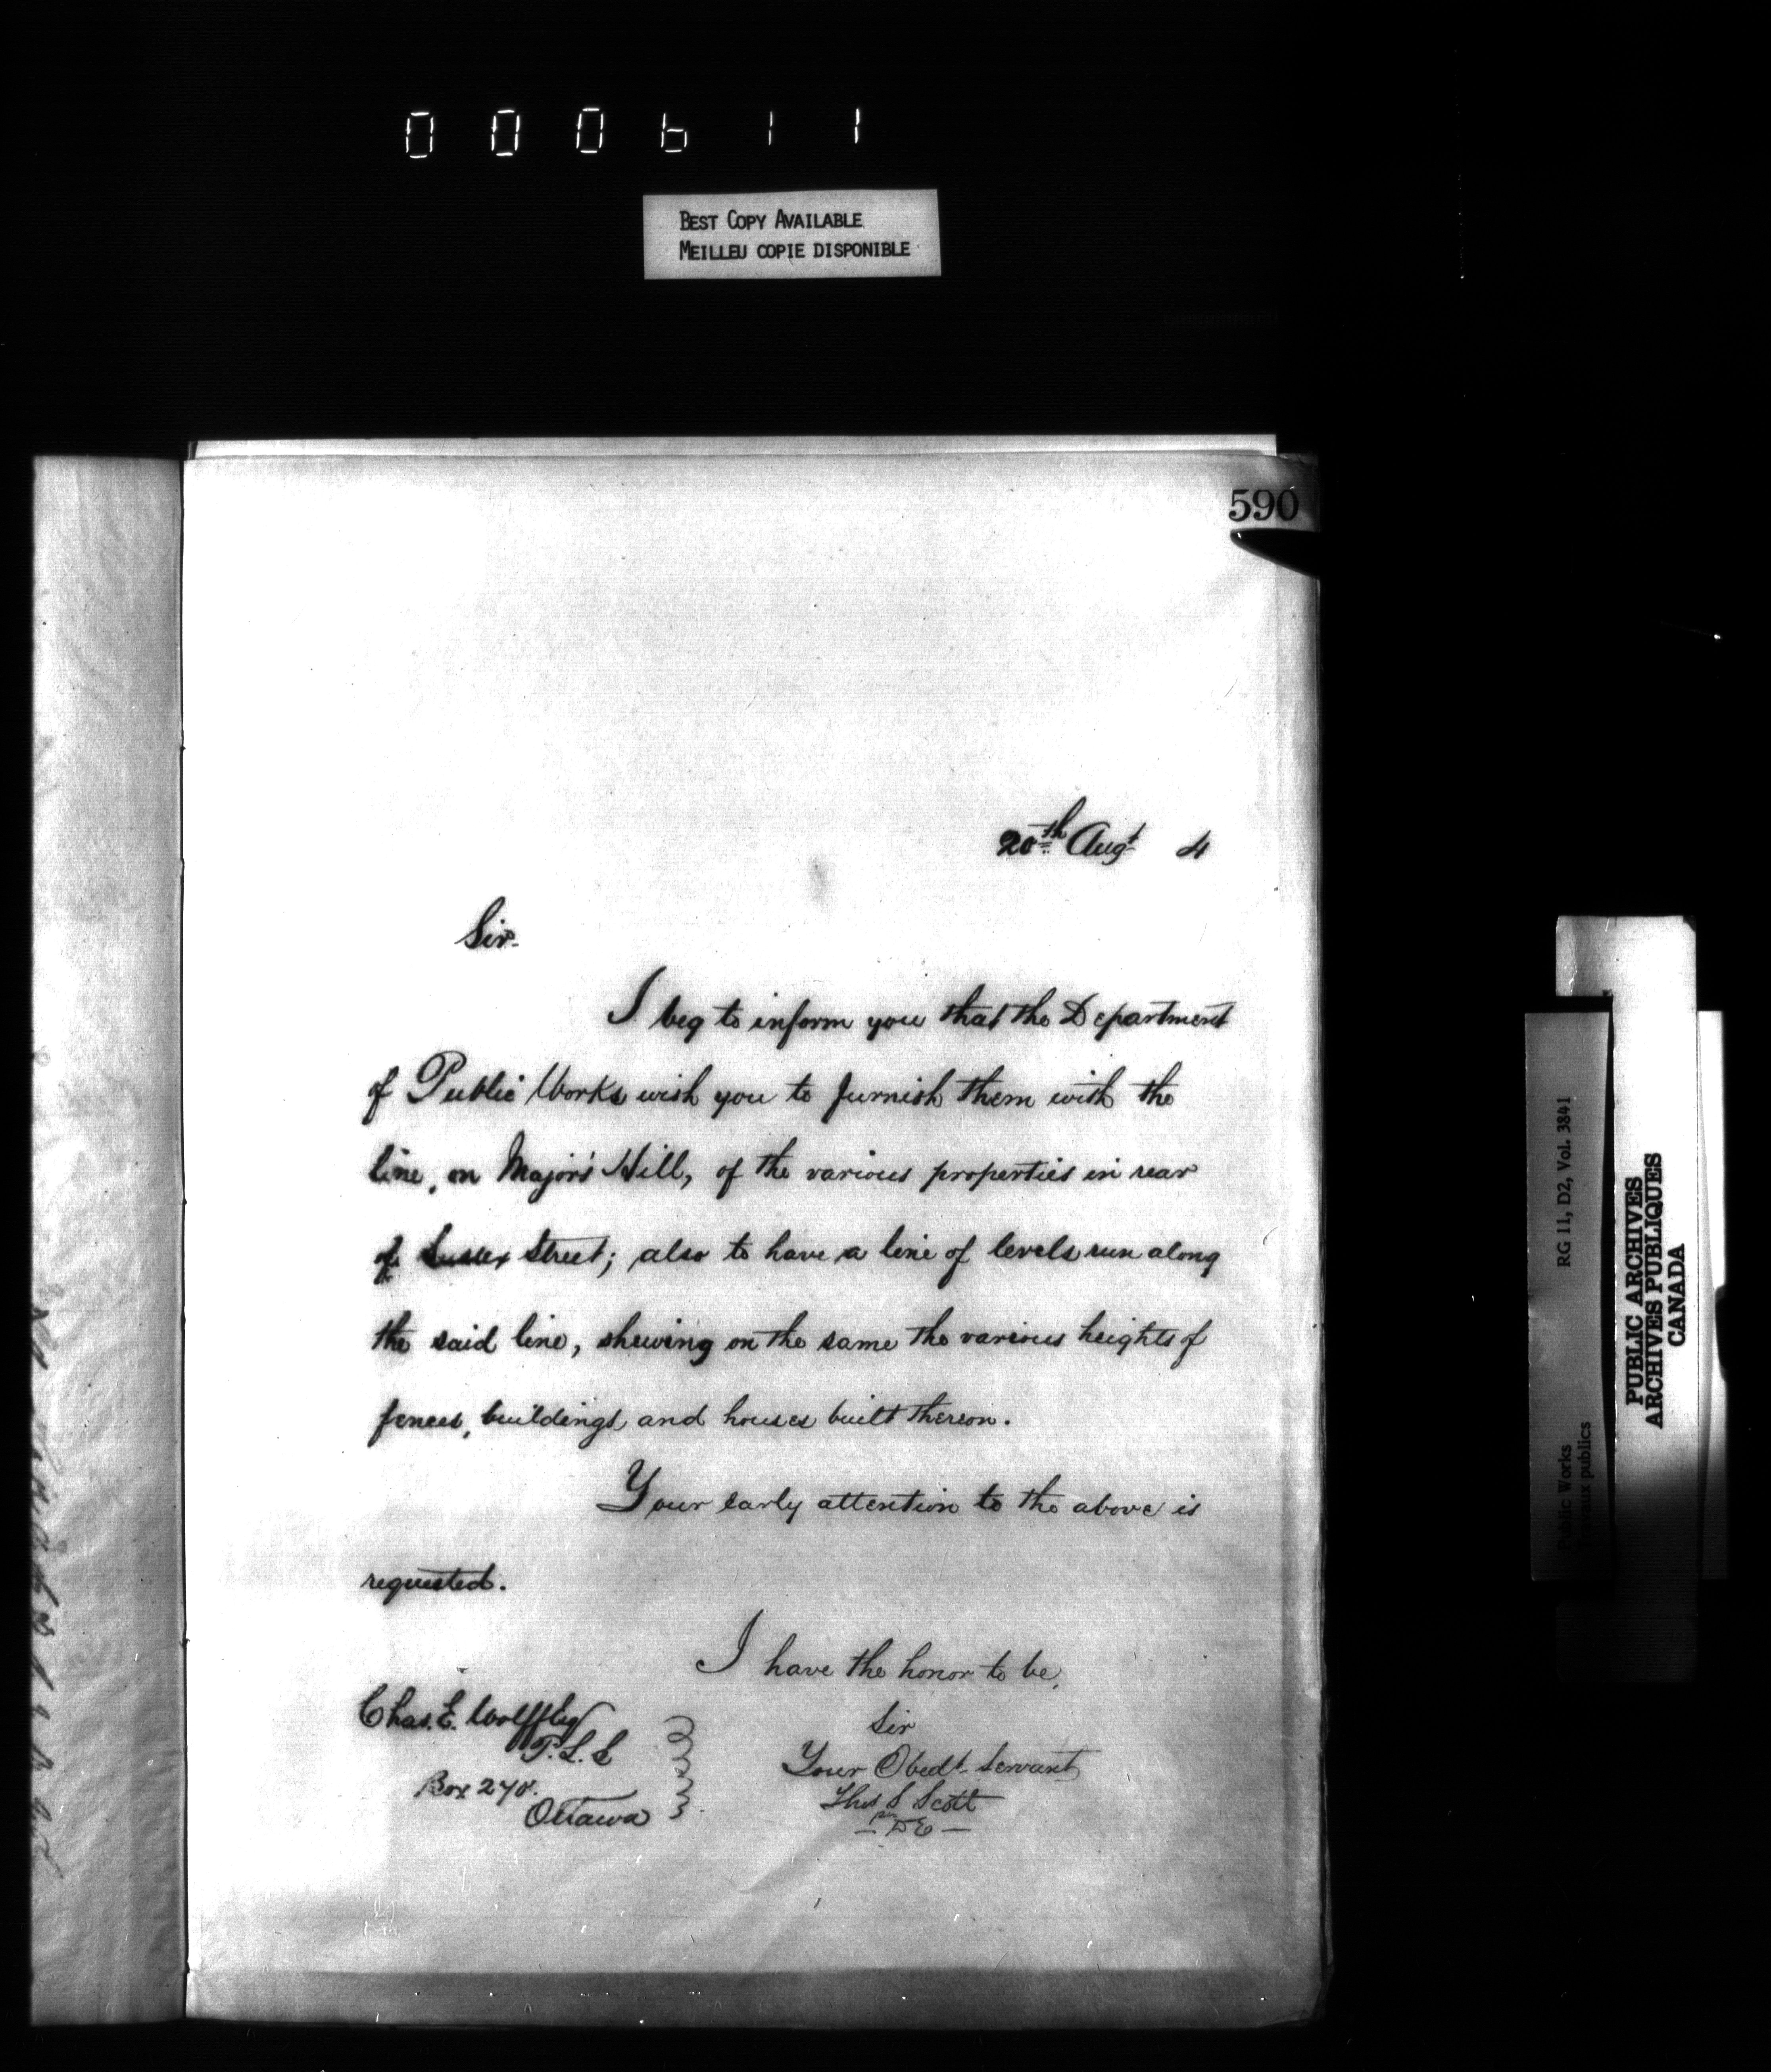 000611
BEST COPY AVAILABLE
MEILLEU COPIE DISPONIBLE
590
20th Augt 4
Sir.
I beg to inform you that the Department
of Public Works wish you to furnish them with the
line, on Major's Hill, of the various properties in rear
of Sussex Street; also to have a line of levels run along
the said line, shewing on the same the various heights of
fences, buildings, and houses built thereon.
Your early attention to the above is
requested.
I have the honor to be,
Sir
Your Obedt. Servant
Thos S Scott
per
— D E —
Chas. E. Wolffley
P. L. S
Box 270.
Ottawa
RG 11, D2, Vol. 3841
Public Works
Travaux publics
PUBLIC ARCHIVES
ARCHIVES PUBLIQUES
CANADA